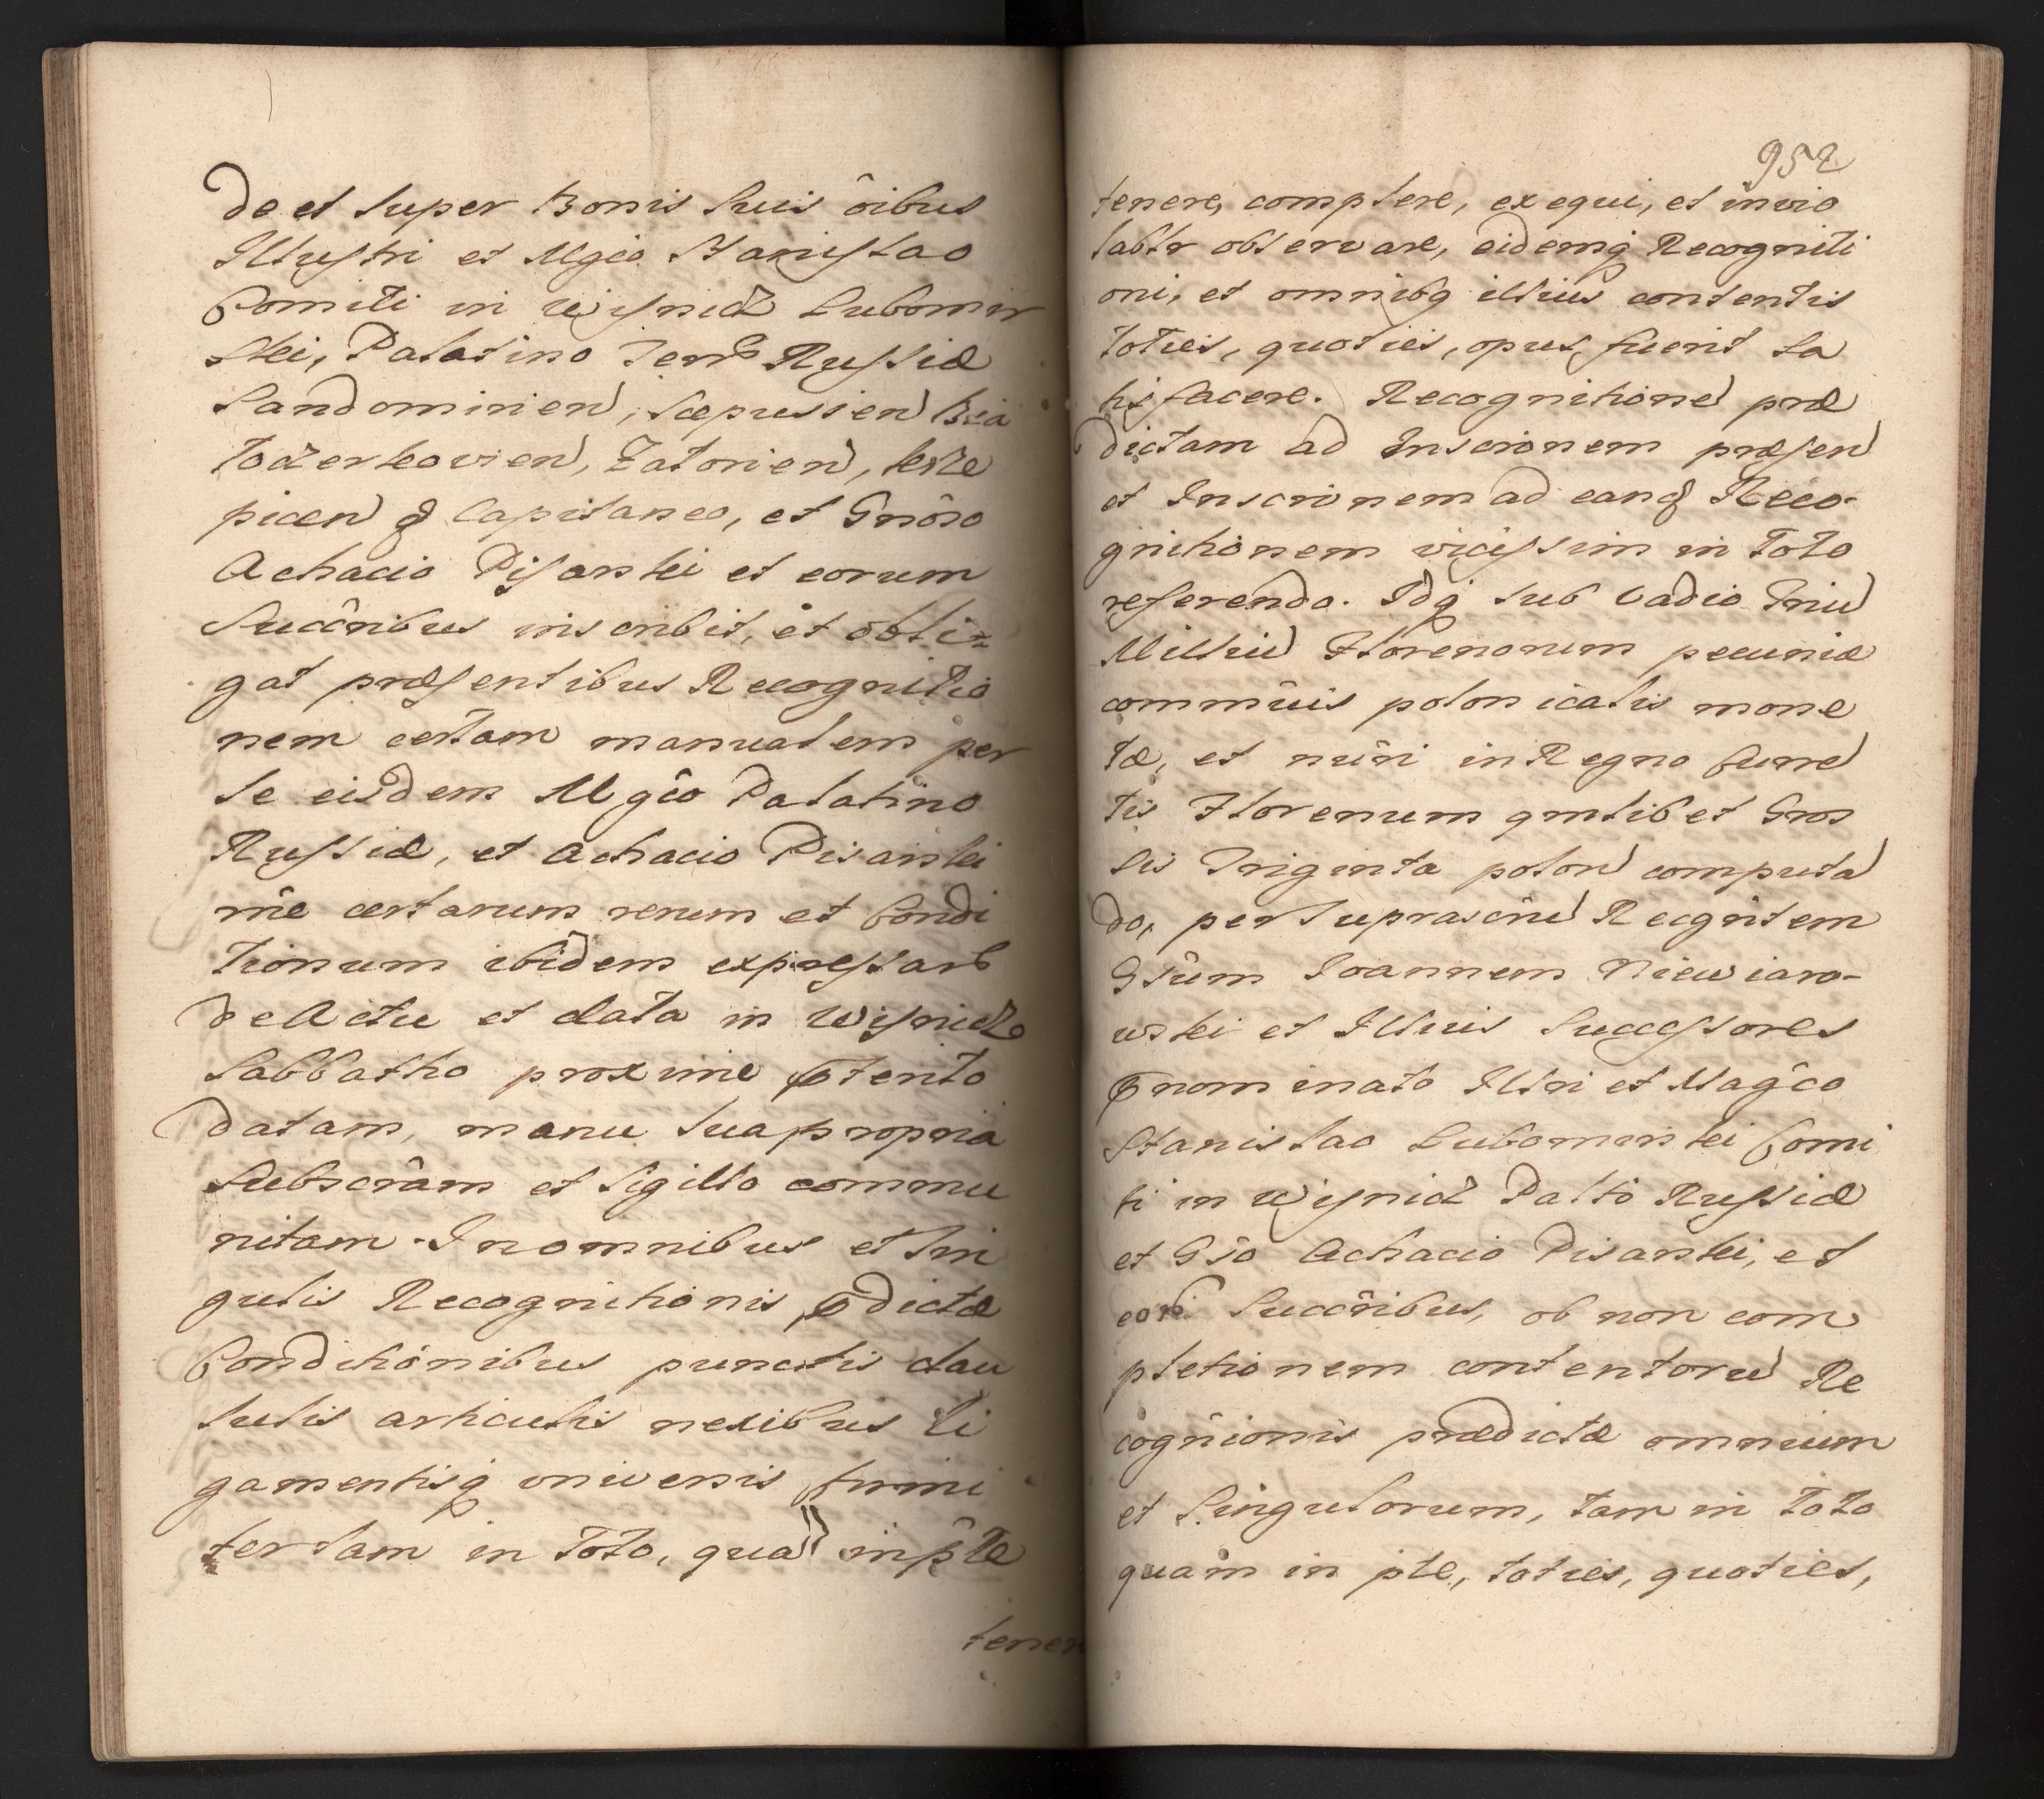 de et super Bonis suis oîbus
Illustri et Mgco Stanislao
Comiti in Wisnicz Lubomir
ski, Palatino Terrũ Russiæ
Sandomirien, Scepusien Bia
loczerkovien, Zatorien, krze
picen & Capitaneo, et Gnôso
Achacio Pisarski et eorum
Succñribus inscribit, et obli=
gat præsentibus Recognitio
nem certam manualem per
se eisdem Mgĉo Palatino
Russiæ, et Achacio Pisarski
rñe certarum rerum et Condi
tionum ibîdem expressarũ
de Actu et data in Wisnicz
Sabbatho proxime pterito
datam, manu sua propria
Subscrâm et Sigillo commu
nitam. In omnibus et sin
gulis Recognitionis, pdictæ
Conditionibus punctis clau
sulis articulis nexibus li
gamentisq universis firmi
ter tam in toto, qua in pte
tener
952
tenere, complere, exequi, et invio
labtr observare, eidemq Recogniti
oni, et omnibq illius contentis
toties, quoties, opus fuerit sa
tisfacere. Recognitione præ
dictam ad Inscrionem præsen
et Inscrionem ad eand Reco-
gnitionem vicissim in toto
referendo. Idq sub vadio Triu
Milliu Florenorum pecuniæ
commûis polonicalis mone
tæ, et nûri in Regno Curre
tis Florenum qmlibet Gros
sis Triginta polon computa
do, per suprascriu Recgñtem
Gsûm Joannem Niewiaro-
wski et Illius Successores
pnominato Illri et Magĉo
Stanislao Lubomirski Comi
ti in Wisnicz Paltô Russiæ
et Gsô Achacio Pisarski, et
eorũ Succñribus, ob non com
pletionem contentoru Re
cogñionis prædictæ omnium
et Singulorum, tam in toto
quam in pte, toties, quoties,